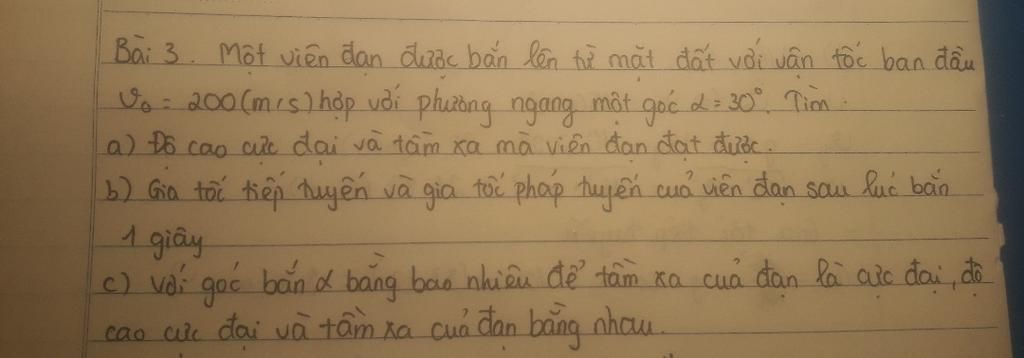 Bài 3. Một viên đạn được bắn lên từ mặt đất với vận tốc ban đầu
v₀ = 200(m/s) hợp với phương ngang một góc α = 30°. Tìm.
a) Độ cao cực đại và tầm xa mà viên đạn đạt được.
b) Gia tốc tiếp tuyến và gia tốc pháp tuyến cuả viên đạn sau lúc bắn
1 giây
c) Với góc bắn α bằng bao nhiêu để tầm xa cuả đạn là cực đại, độ
cao cực đại và tầm xa cuả đạn bằng nhau.